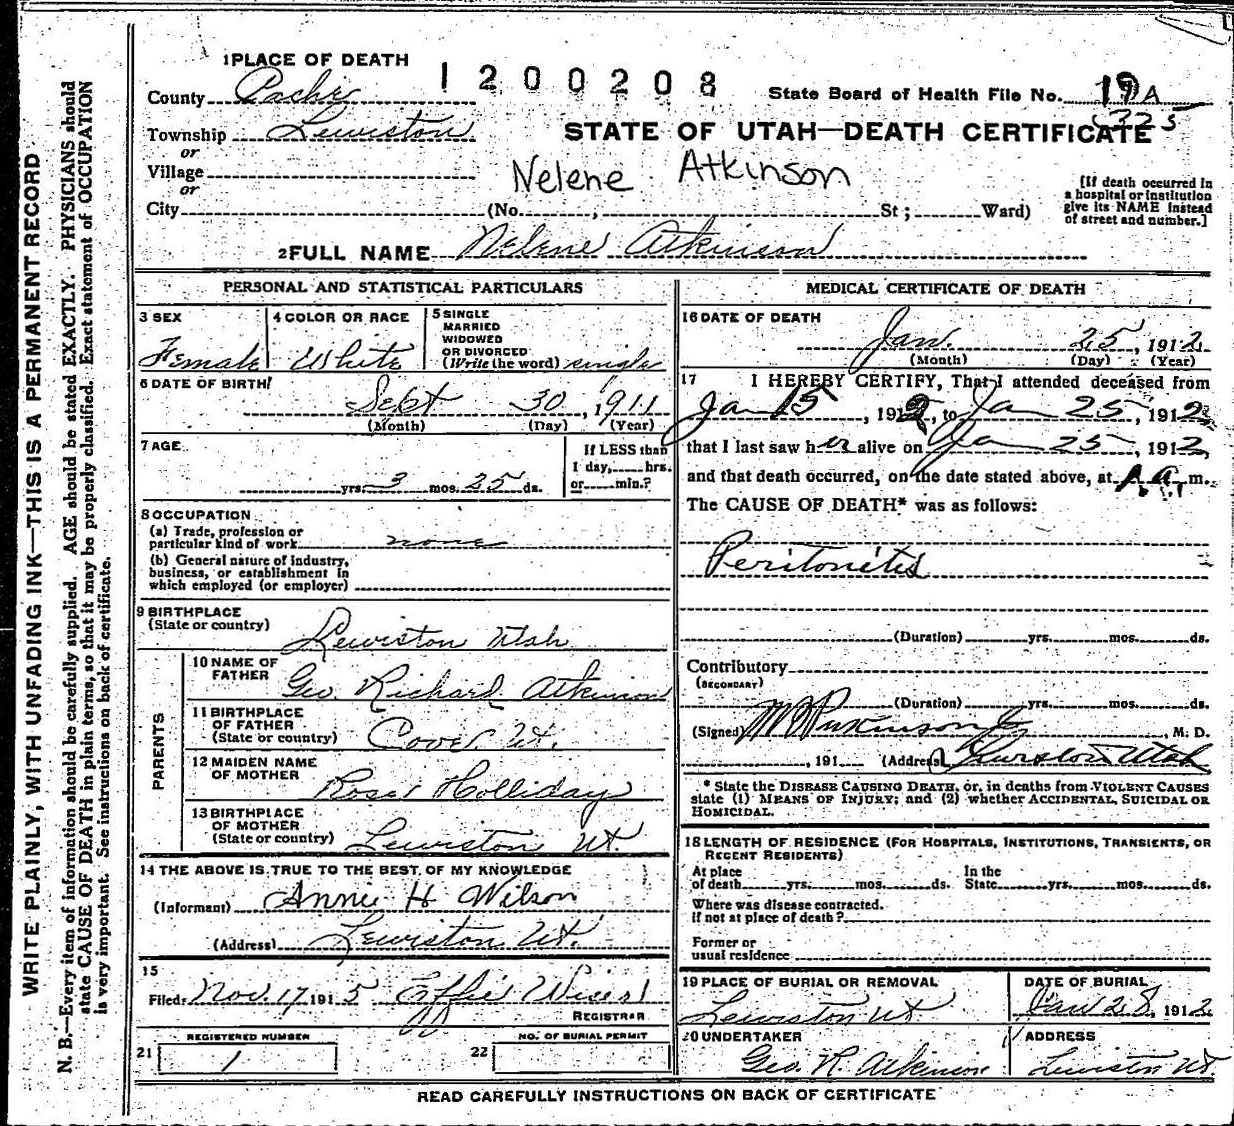 WRITE PLAINLY, WITH UNFADING INK—THIS IS A PERMANENT RECORD
N. B.—Every item of information should be carefully supplied. AGE should be stated EXACTLY. PHYSICIANS should
state CAUSE OF DEATH in plain terms, so that it may be properly classified. Exact statement of OCCUPATION
is very important. See instructions on back of certificate.
1 PLACE OF DEATH
1200208
County Cache
State Board of Health File No. 19 A
325
Township Lewiston
STATE OF UTAH—DEATH CERTIFICATE
or
Village
Nelene Atkinson
or
City (No. , St ; Ward)
[If death occurred in
a hospital or institution
give its NAME instead
of street and number.]
2 FULL NAME Nelene Atkinson
PERSONAL AND STATISTICAL PARTICULARS
3 SEX
Female
4 COLOR OR RACE
White
5 SINGLE
MARRIED
WIDOWED
OR DIVORCED
(Write the word) single
6 DATE OF BIRTH
Sept 30, 1911
(Month) (Day) (Year)
7 AGE
yrs. 3 mos. 25 ds.
If LESS than
1 day, hrs.
or min.?
8 OCCUPATION
(a) Trade, profession or
particular kind of work none
(b) General nature of industry,
business, or establishment in
which employed (or employer)
9 BIRTHPLACE
(State or country) Lewiston Utah
PARENTS
10 NAME OF
FATHER Geo. Richard Atkinson
11 BIRTHPLACE
OF FATHER
(State or country) Cove Ut.
12 MAIDEN NAME
OF MOTHER Rose Holliday
13 BIRTHPLACE
OF MOTHER
(State or country) Lewiston Ut.
14 THE ABOVE IS TRUE TO THE BEST OF MY KNOWLEDGE
(Informant) Annie H Wilson
(Address) Lewiston Ut.
15
Filed Nov. 17, 1915 Effie
REGISTRAR
REGISTERED NUMBER
21 1
NO. OF BURIAL PERMIT
22
MEDICAL CERTIFICATE OF DEATH
16 DATE OF DEATH
Jan. 25, 1912
(Month) (Day) (Year)
17 I HEREBY CERTIFY, That I attended deceased from
Jan 15, 1912, to Jan 25, 1912,
that I last saw her alive on Jan 25, 1912,
and that death occurred, on the date stated above, at a. m.
The CAUSE OF DEATH* was as follows:
Peritonitis
(Duration) yrs. mos. ds.
Contributory
(SECONDARY)
(Duration) yrs. mos. ds.
(Signed) W Parkinson Jr, M. D.
, 191 (Address) Lewiston Utah
* State the DISEASE CAUSING DEATH, or, in deaths from VIOLENT CAUSES
state (1) MEANS OF INJURY; and (2) whether ACCIDENTAL, SUICIDAL OR
HOMICIDAL.
18 LENGTH OF RESIDENCE (FOR HOSPITALS, INSTITUTIONS, TRANSIENTS, OR
RECENT RESIDENTS)
At place
of death yrs. mos. ds.
In the
State yrs. mos. ds.
Where was disease contracted.
if not at place of death?
Former or
usual residence
19 PLACE OF BURIAL OR REMOVAL
Lewiston Ut
DATE OF BURIAL
Jan 28, 1912
20 UNDERTAKER
Geo. R. Atkinson
ADDRESS
Lewiston Ut.
READ CAREFULLY INSTRUCTIONS ON BACK OF CERTIFICATE